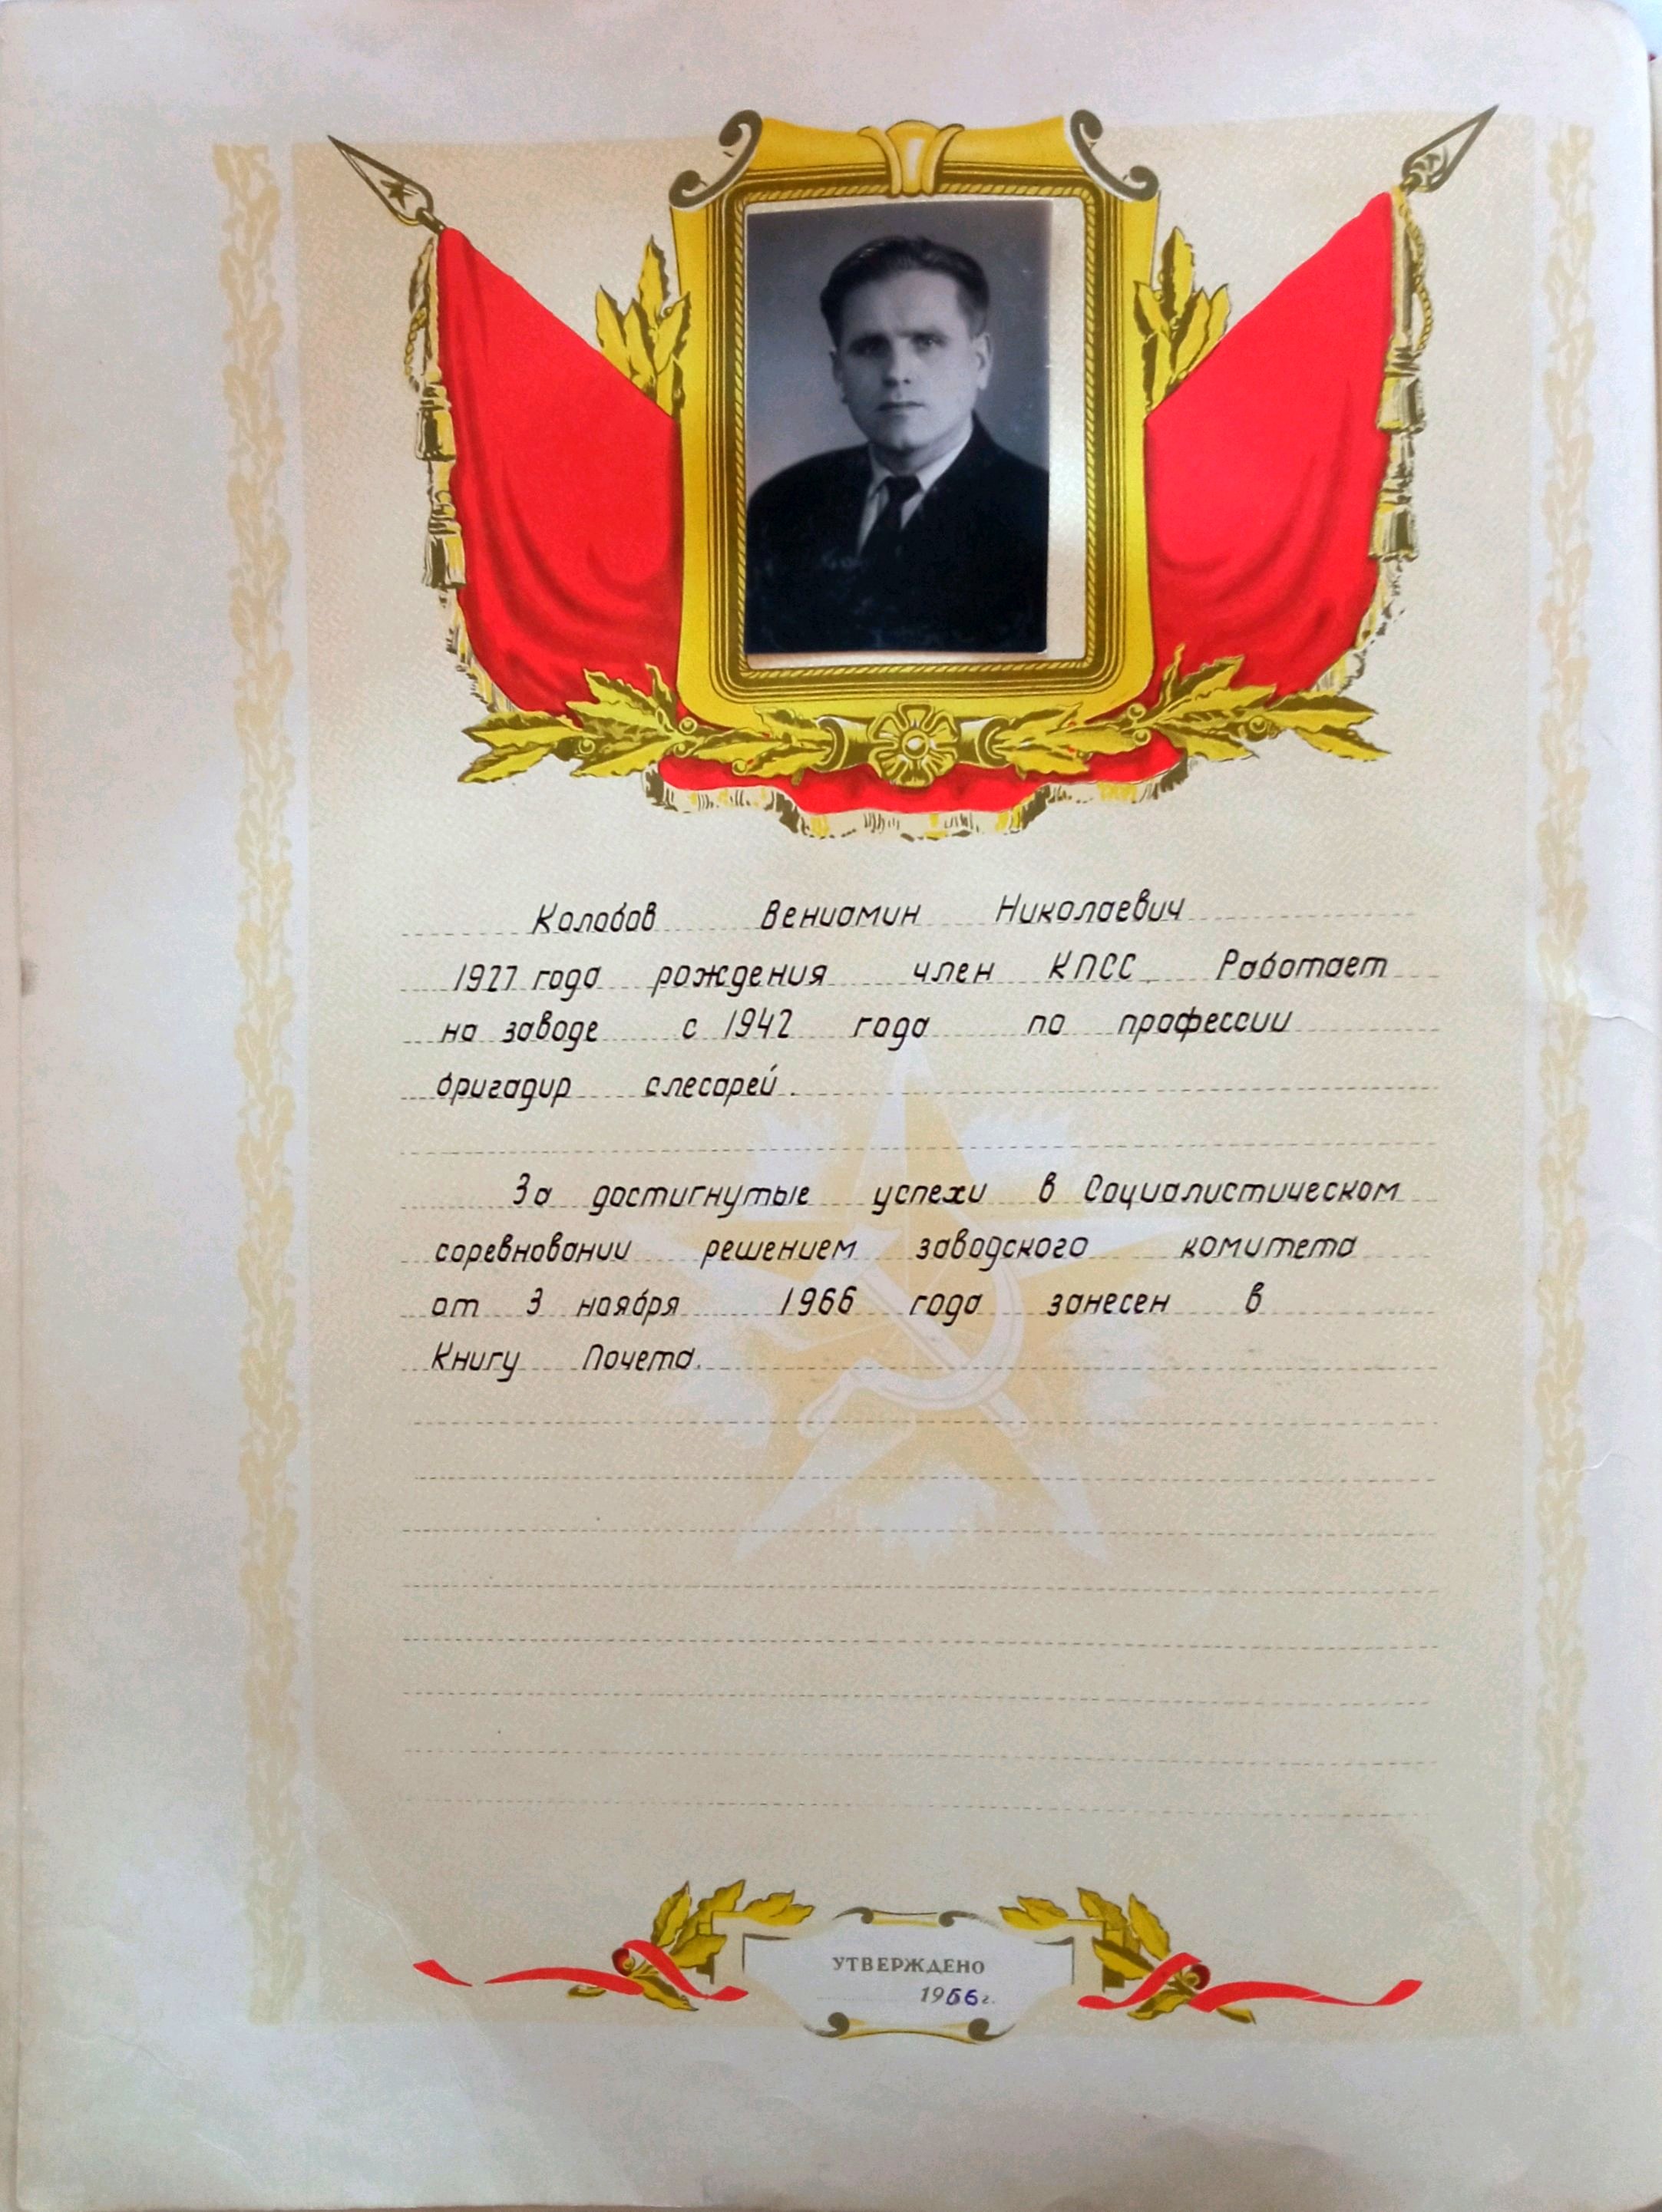 Колобов Вениамин Николаевич
1927 года рождения член КПСС. Работает
на заводе с 1942 года по профессии
бригадир слесарей.
За достигнутые успехи в Социалистическом
соревновании решением заводского комитета
от 3 ноября 1966 года занесен в
Книгу Почета.
УТВЕРЖДЕНО
1966 г.